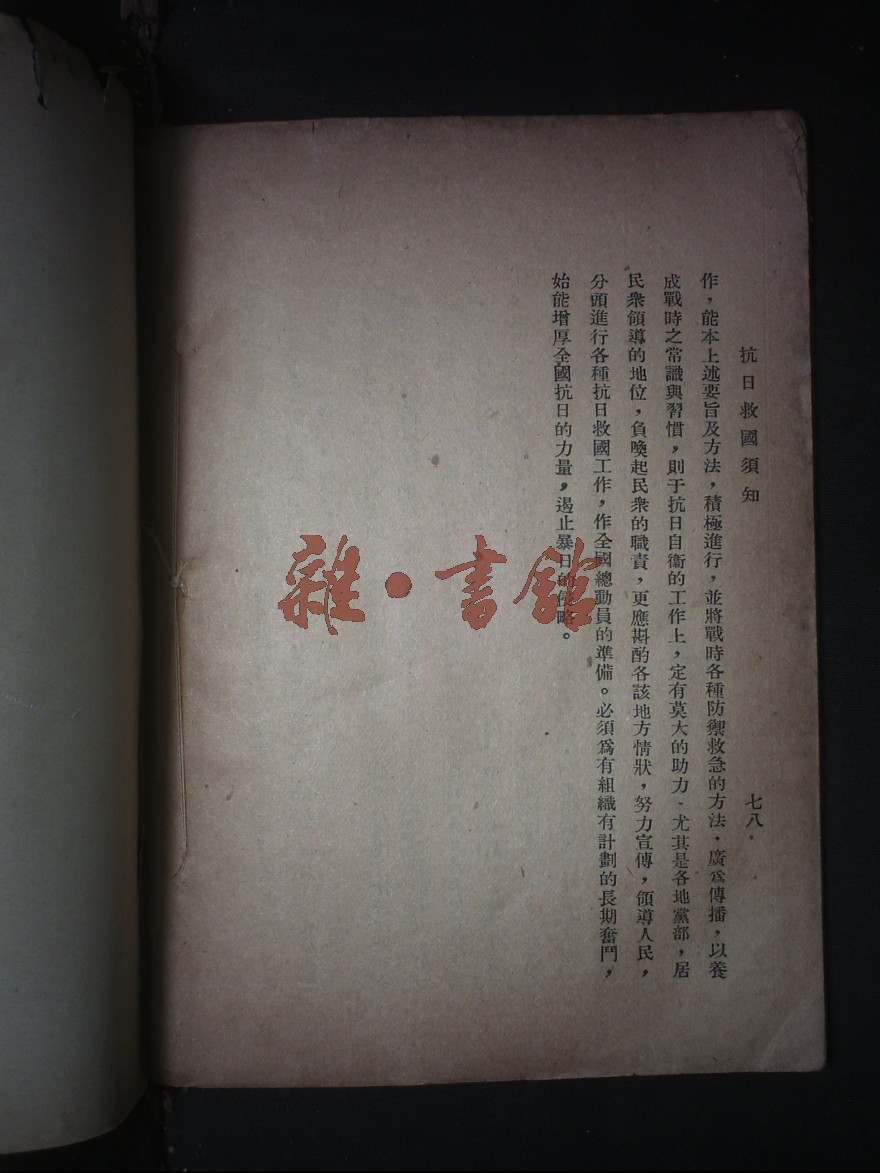 抗日救國須知
七八
作，能本上述要旨及方法，積極進行，並將戰時各種防禦救急的方法，廣爲傳播，以養
成戰時之常識與習慣，則于抗日自衞的工作上，定有莫大的助力、尤其是各地黨部，居
民衆領導的地位，負喚起民衆的職責，更應斟酌各該地方情狀，努力宣傳，領導人民，
分頭進行各種抗日救國工作，作全國總動員的準備。必須爲有組織有計劃的長期奮鬥，
始能增厚全國抗日的力量，遏止暴日的侵略。
雜·書館